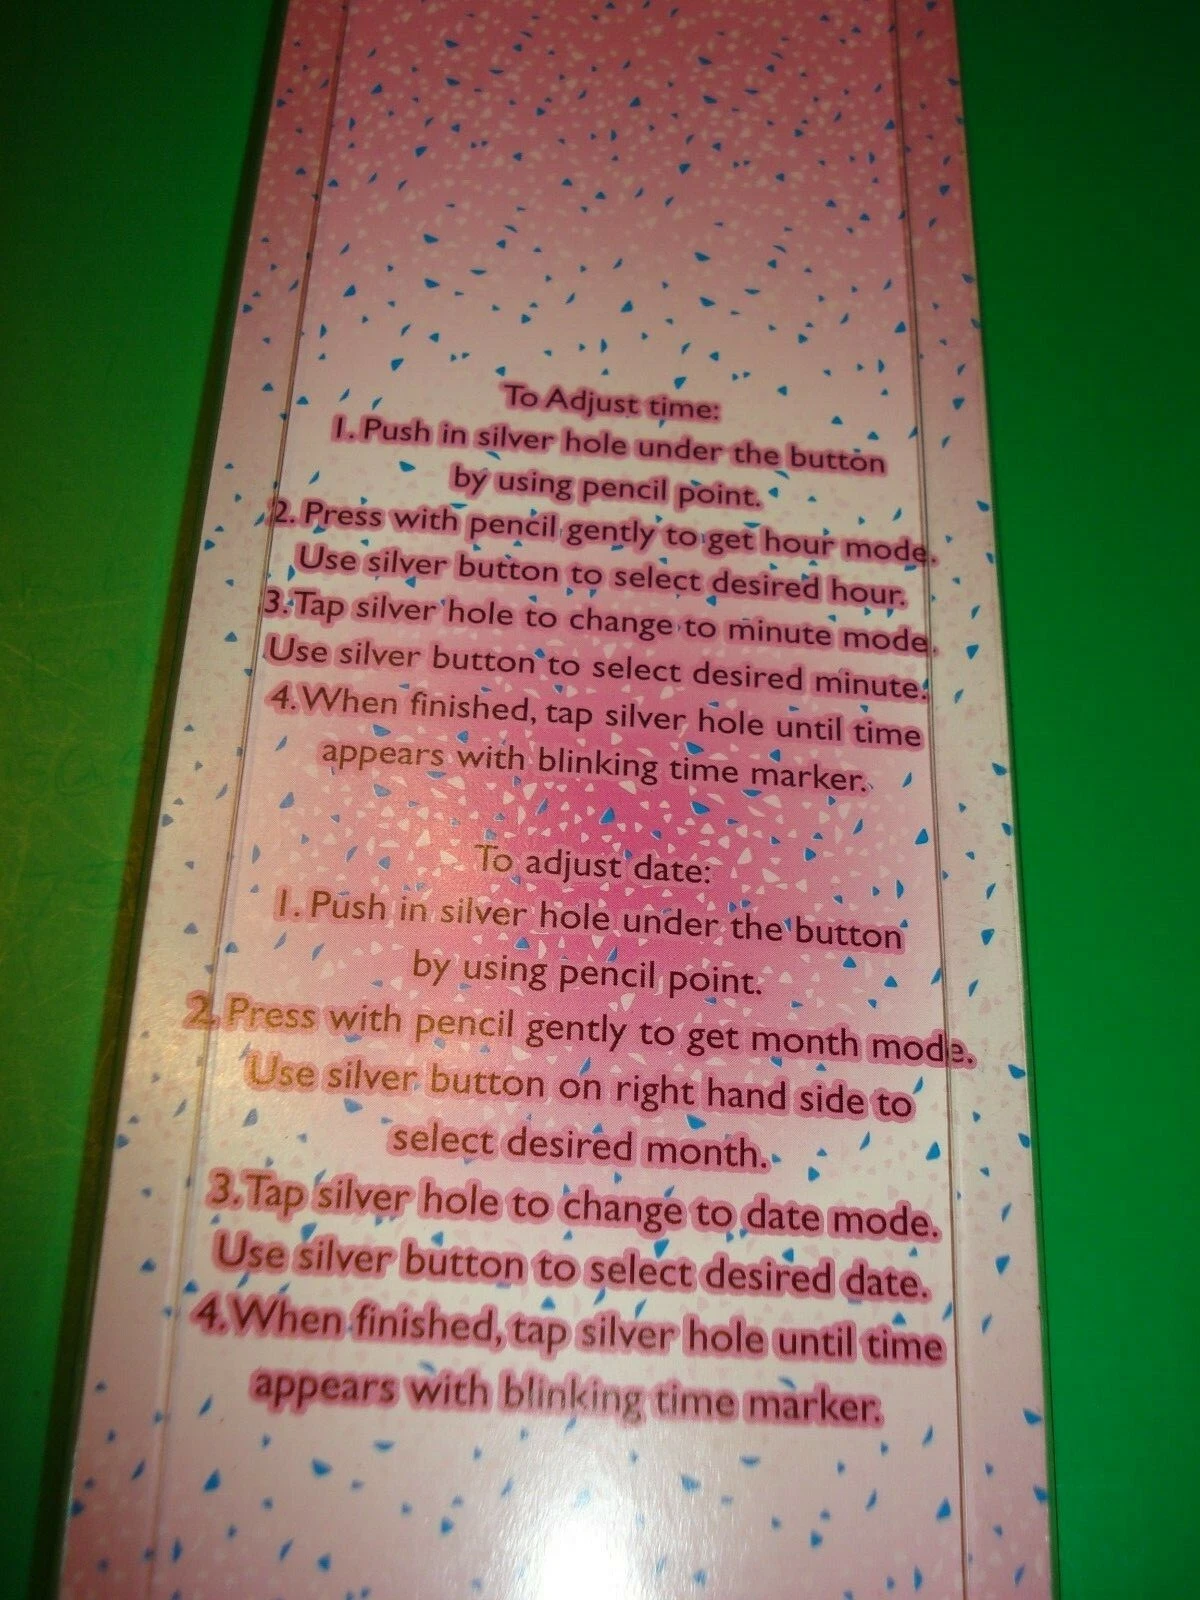 To Adjust time:
1. Push in silver hole under the button
by using pencil point.
2. Press with pencil gently to get hour mode.
Use silver button to select desired hour.
3. Tap silver hole to change to minute mode.
Use silver button to select desired minute.
4. When finished, tap silver hole until time
appears with blinking time marker.
To adjust date:
1. Push in silver hole under the button
by using pencil point.
2. Press with pencil gently to get month mode.
Use silver button on right hand side to
select desired month.
3. Tap silver hole to change to date mode.
Use silver button to select desired date.
4. When finished, tap silver hole until time
appears with blinking time marker.